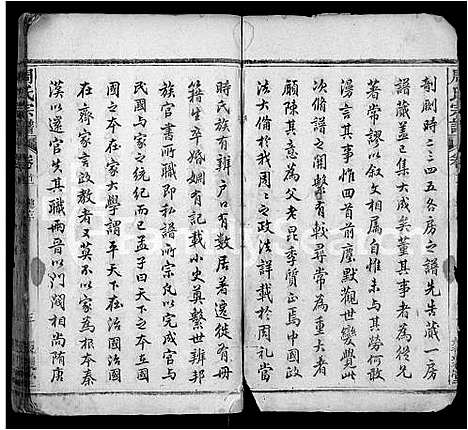 剞劂時二三四五各房之譜先告蕆一房
譜蕆蓋已集大成矣董其事者為從兄
著常謬以敘文相屬自惟未与其勞何敢
漫言其事惟四首前塵默觀世變覺此
譜之開繫有載尋常為重大者
願陳其意為父老昆季質正焉中國政
法肇治於我周二之政法詳載於周礼當
時民族有辨户口有數居著遷徙有冊
籍生卒婚姻有記載小史奠繫世辨邦
族官書所職即私譜所宗民以完成官与
民國与家之統紀而已孟子四天下之本在
國之本在家大學謂平天下在治國治國
在齊家言政教者又莫不以家為根本秦
漢以還官失其職兩晉以門閥相尚隋唐
周氏宗譜